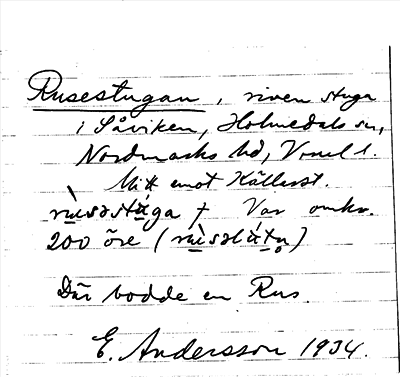 Rusestugan, riven stuga
i Såviken, Holmedals sn,
Nordmarks hd, Vrml l.
Mitt emot Källesst.
rùsəstùga † Var omkr.
200 öre (rùsəlátn̥)
Där bodde en Rus.
E. Andersson 1934.